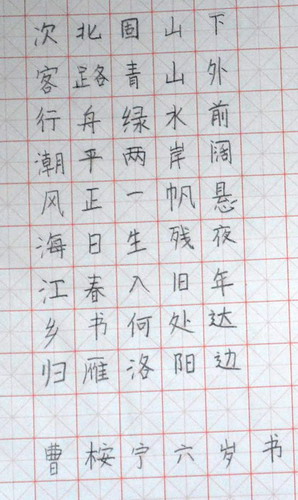 次北固山下
客路青山外
行舟绿水前
潮平两岸阔
风正一帆悬
海日生残夜
江春入旧年
乡书何处达
归雁洛阳边
曹桉宁六岁书